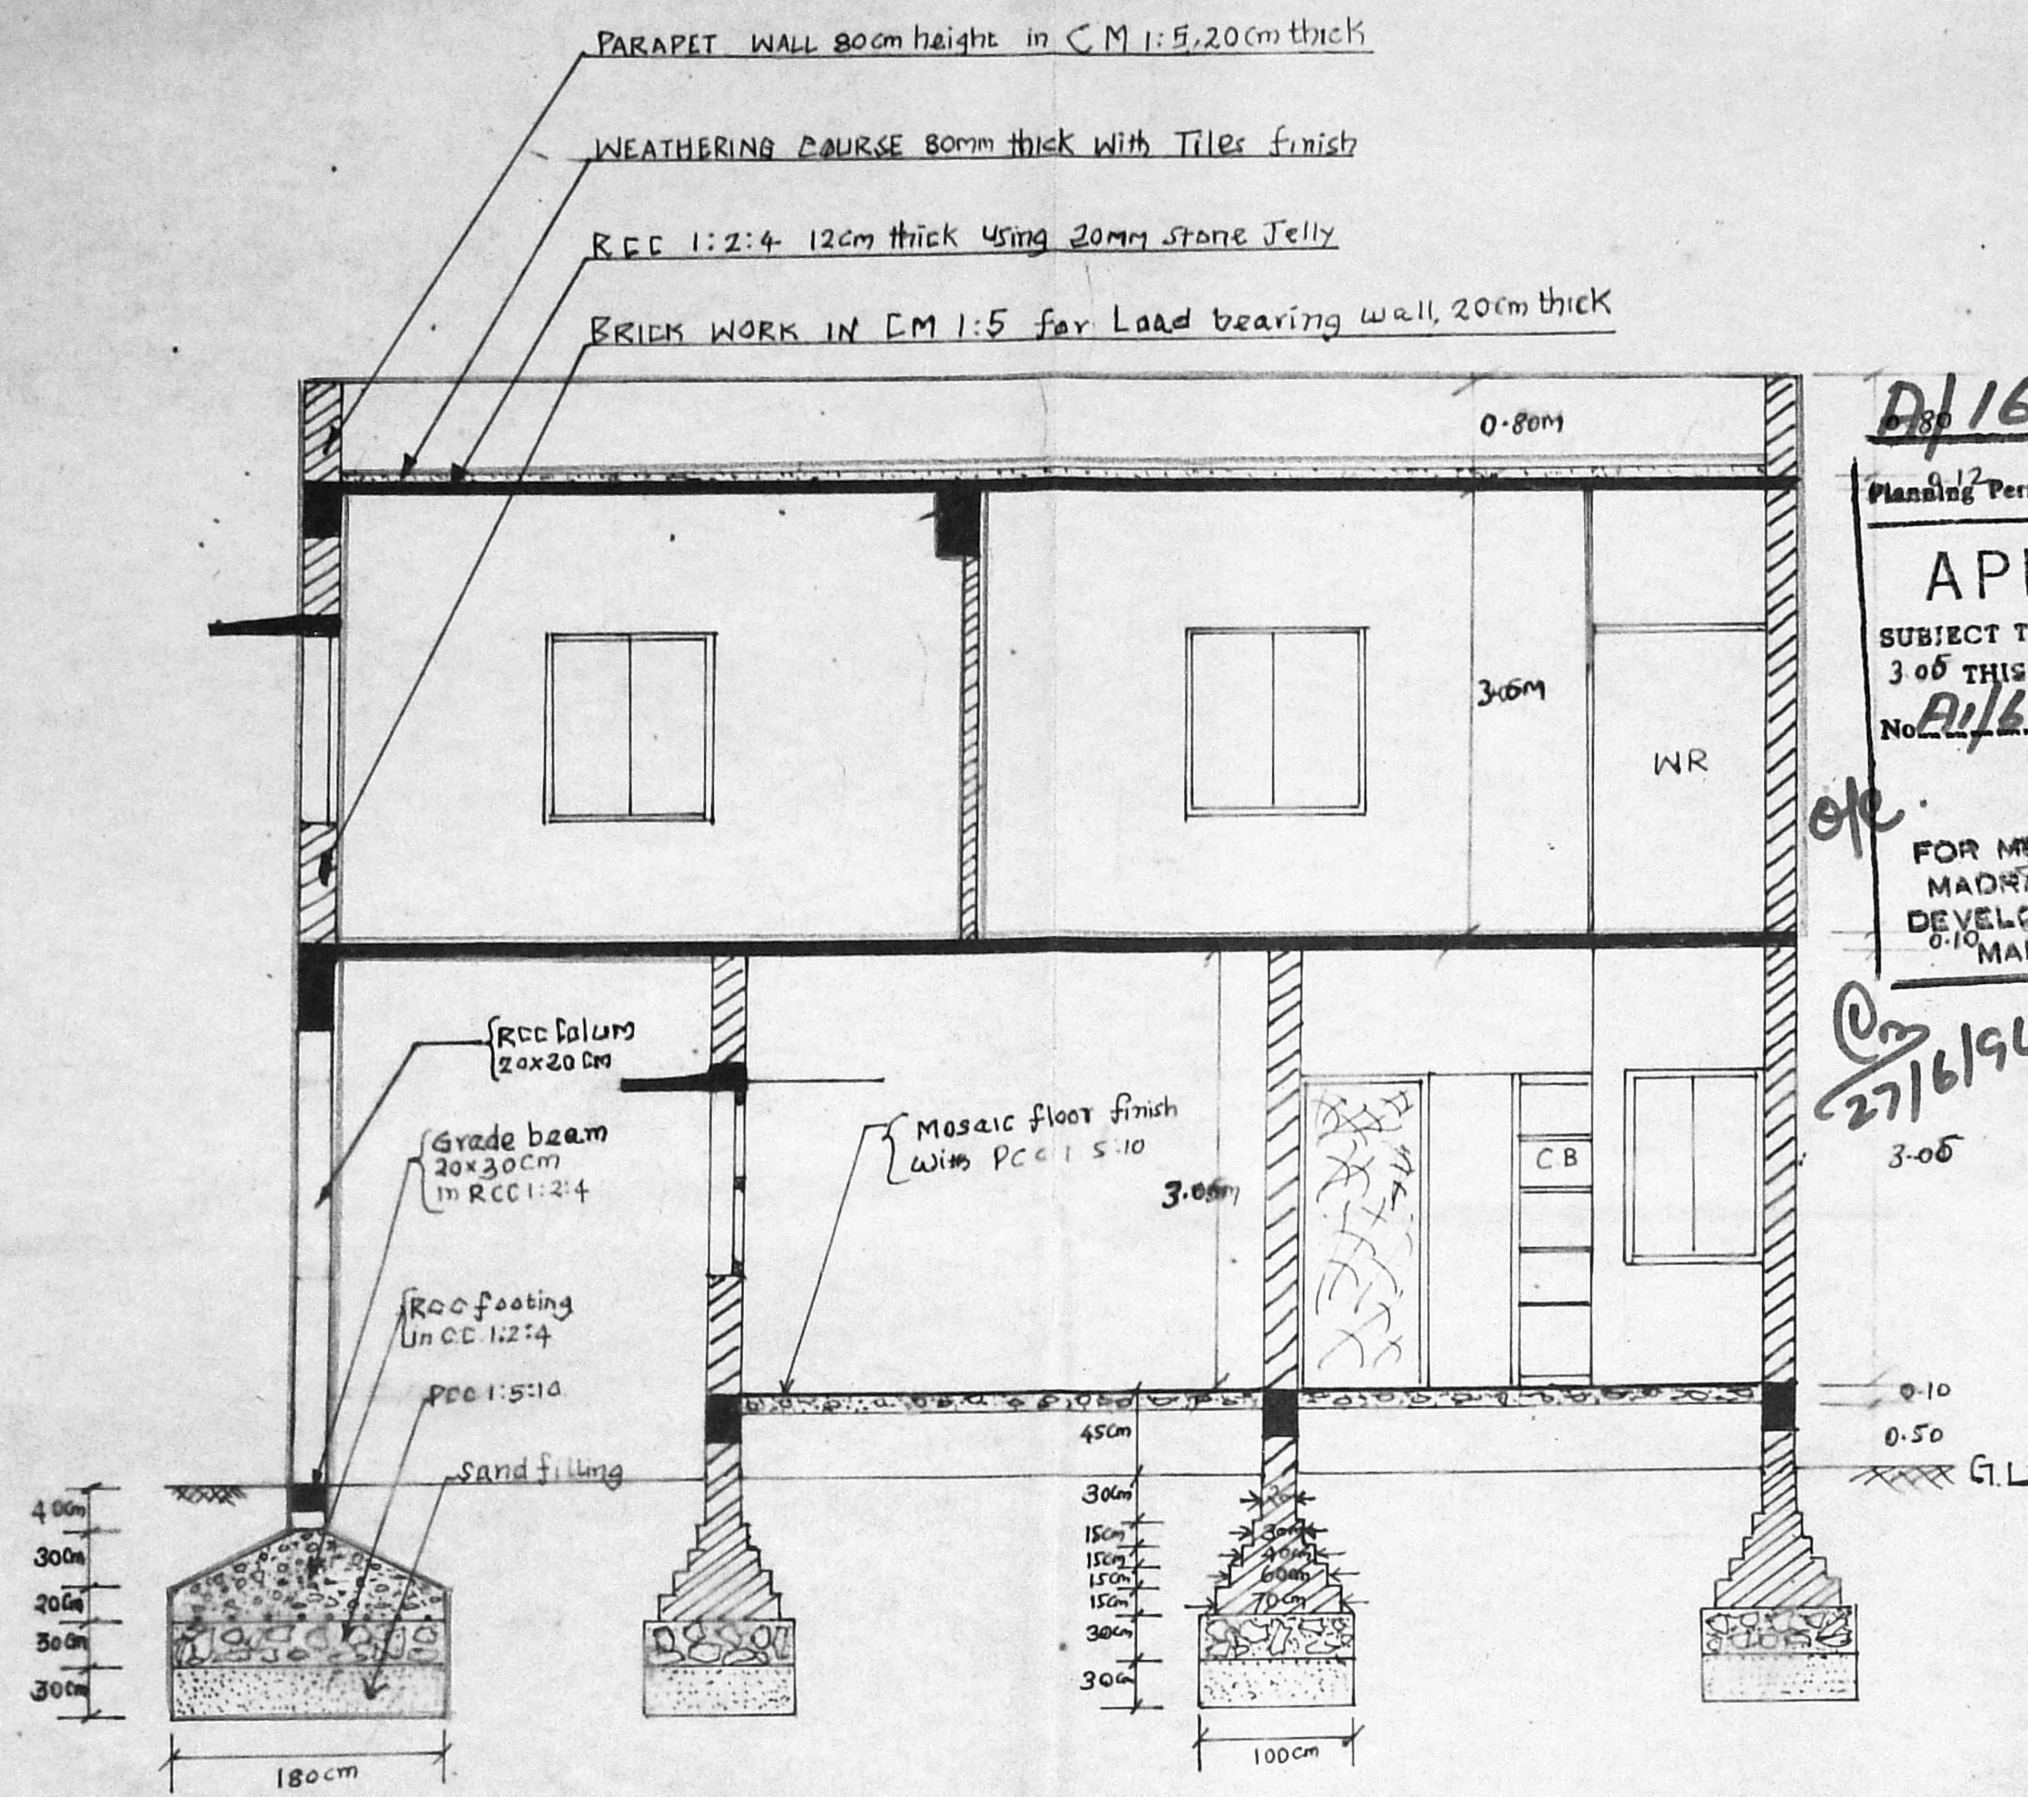 PARAPET WALL 80cm height in CM 1:5, 20cm thick
WEATHERING COURSE 80mm thick With Tiles finish
RCC 1:2:4 12cm thick using 20mm stone Jelly
BRICK WORK IN CM 1:5 for Load bearing wall, 20cm thick
0.80M
A/16
0.80
0.12
Planning Per
AP
SUBJECT T
3.05 THIS
No A1/6
3.05M
WR
O/C
FOR ME
MADR
DEVELO
0.10
MA
RCC Colum
20x20cm
27/6/9
Grade beam
20x30cm
in RCC 1:2:4
Mosaic floor finish
with PCC 1 5:10
CB
3.05
3.05m
RCC footing
in CC 1:2:4
PCC 1:5:10
0.10
45cm
0.50
sand filling
G.L
40cm
30cm
20cm
30cm
30cm
30cm
15cm
15cm
15cm
15cm
30cm
30cm
30cm
40cm
60cm
70cm
180cm
100cm